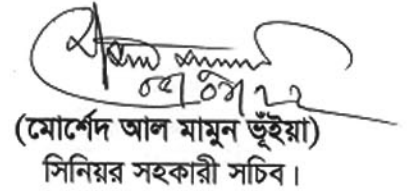 (মোর্শেদ আল মামুন ভূঁইয়া)
সিনিয়র সহকারী সচিব।